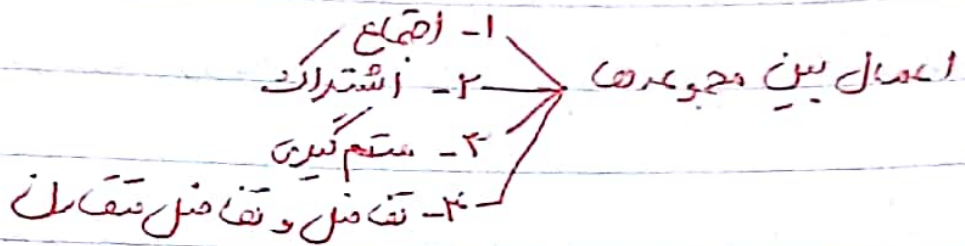 اعمال بین مجموعه‌ها
۱- اجتماع
۲- اشتراک
۳- متمم گیری
۴- تفاضل و تفاضل متقارن